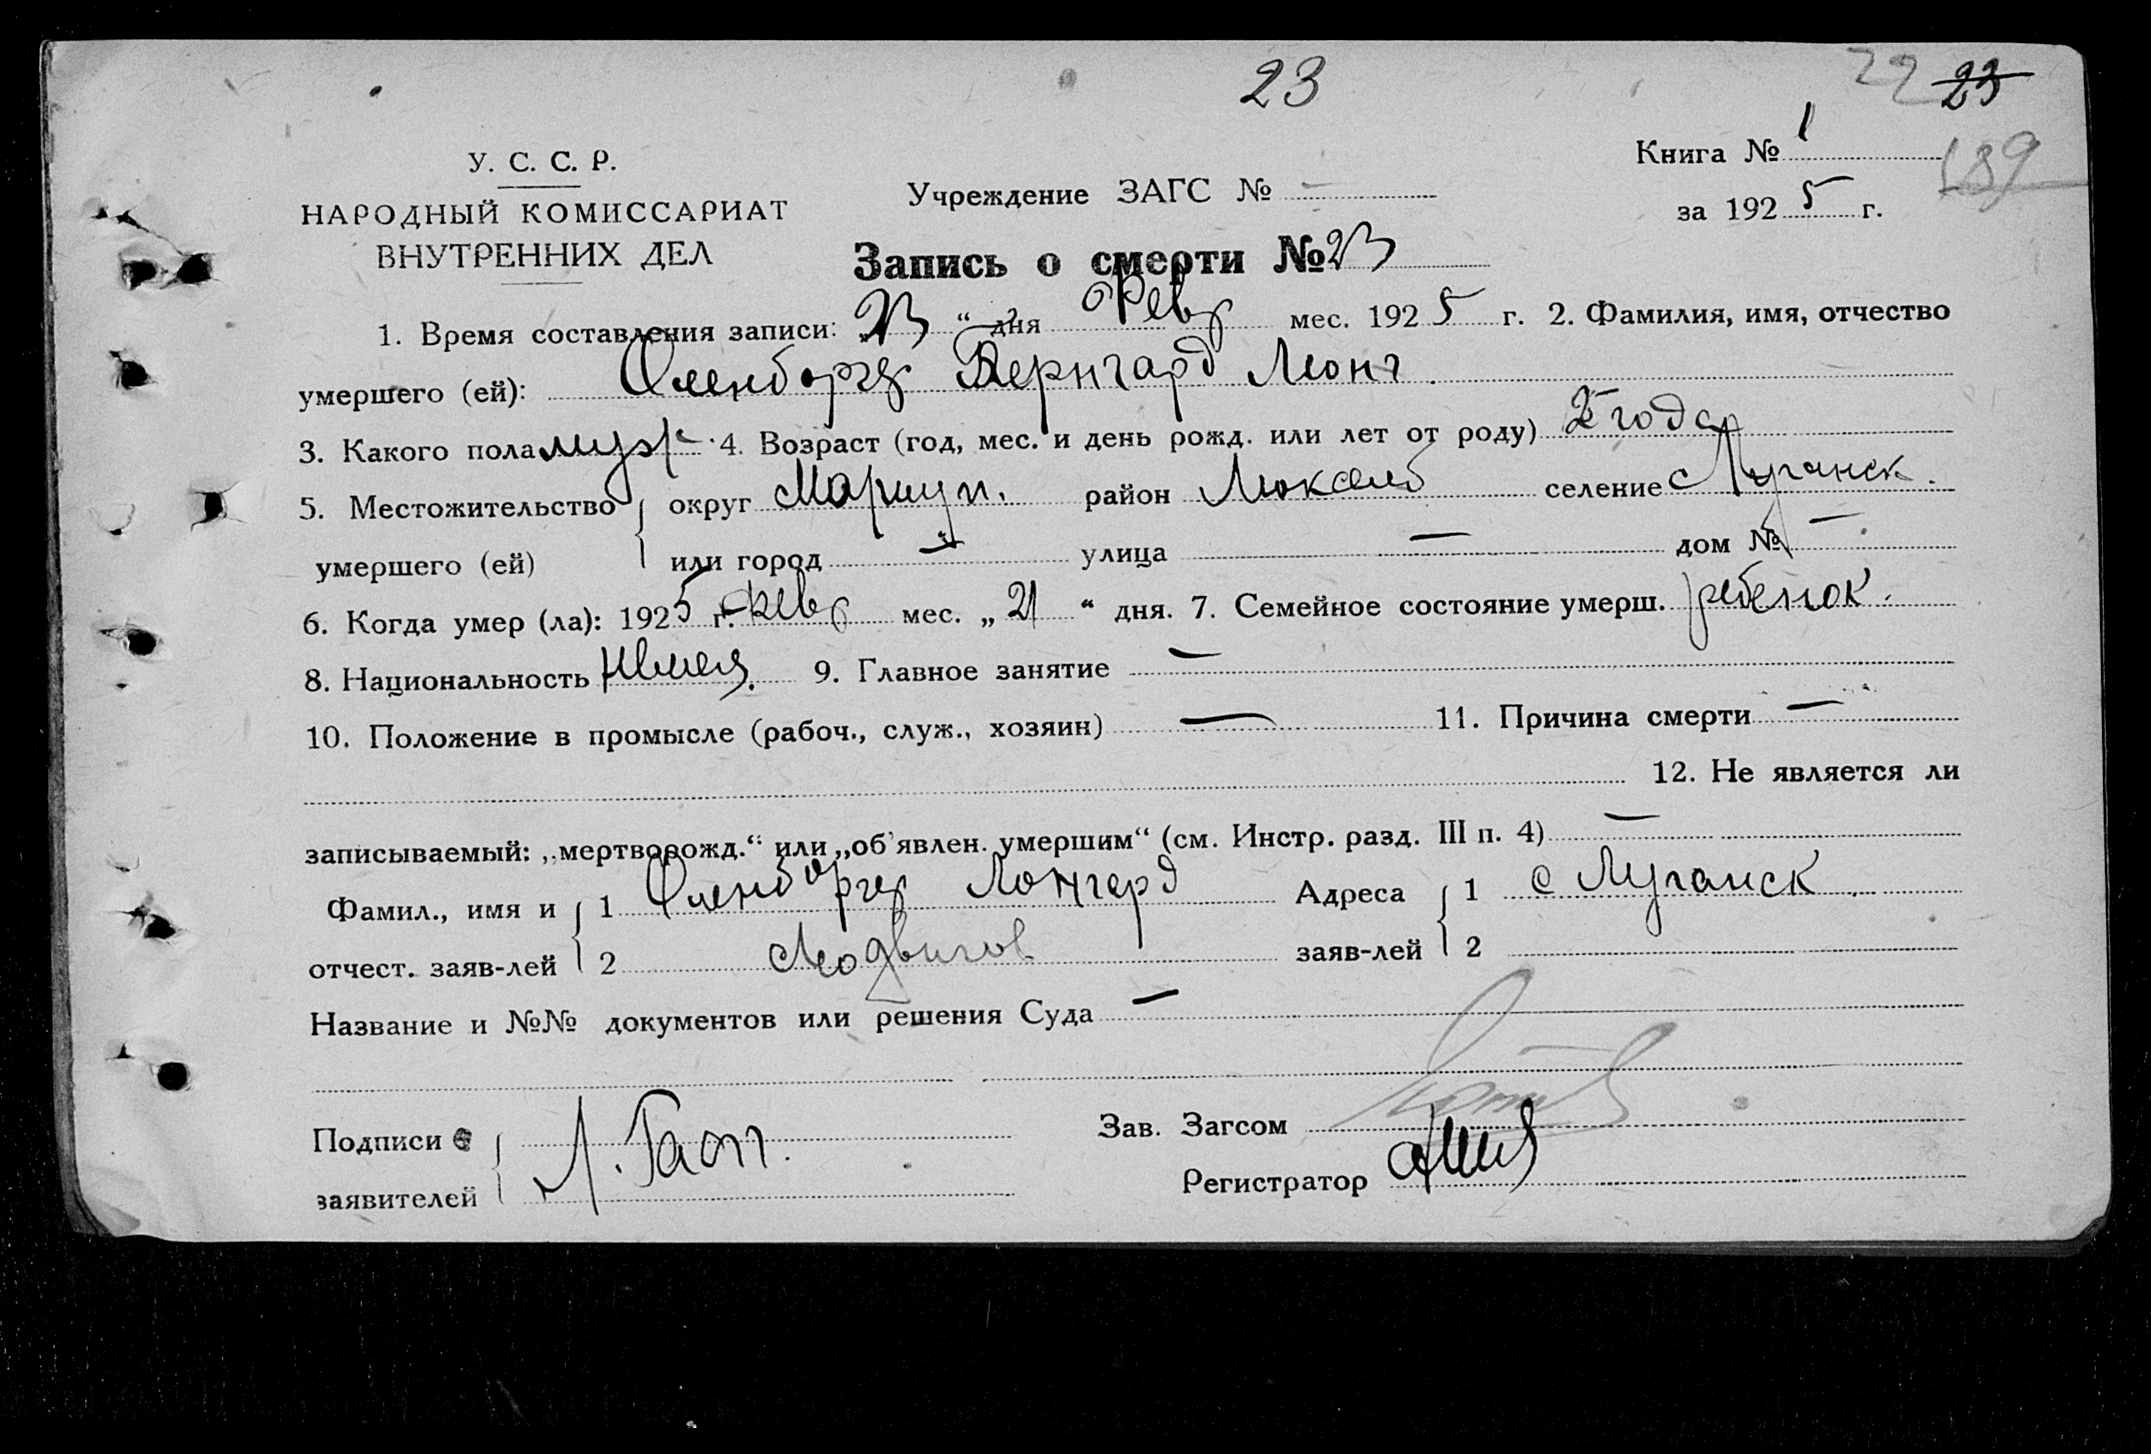 23
22 23
У. С. С. Р.
НАРОДНЫЙ КОМИССАРИАТ
ВНУТРЕННИХ ДЕЛ
Учреждение ЗАГС № —
Книга № 1
189
за 1925 г.
Запись о смерти № 23
1. Время составления записи: „23“ дня Февр мес. 1925 г. 2. Фамилия, имя, отчество
умершего (ей): Оленборгер Бернгард Леонг
3. Какого пола муж 4. Возраст (год, мес. и день рожд. или лет от роду) 2 года
5. Местожительство округ Мариуп. район Люксемб селение Луганск.
умершего (ей) или город — улица — дом № —
6. Когда умер (ла): 1925 г. февр мес. „21“ дня. 7. Семейное состояние умерш. ребенок.
8. Национальность немец. 9. Главное занятие —
10. Положение в промысле (рабоч., служ., хозяин) — 11. Причина смерти —
12. Не является ли
записываемый: „мертворожд.“ или „об'явлен. умершим“ (см. Инстр. разд. III п. 4) —
Фамил., имя и 1 Оленборгер Леонгерд Адреса 1 с Луганск
отчест. заяв-лей 2 Людвигов заяв-лей 2
Название и №№ документов или решения Суда —
Подписи
заявителей
Зав. Загсом
Регистратор